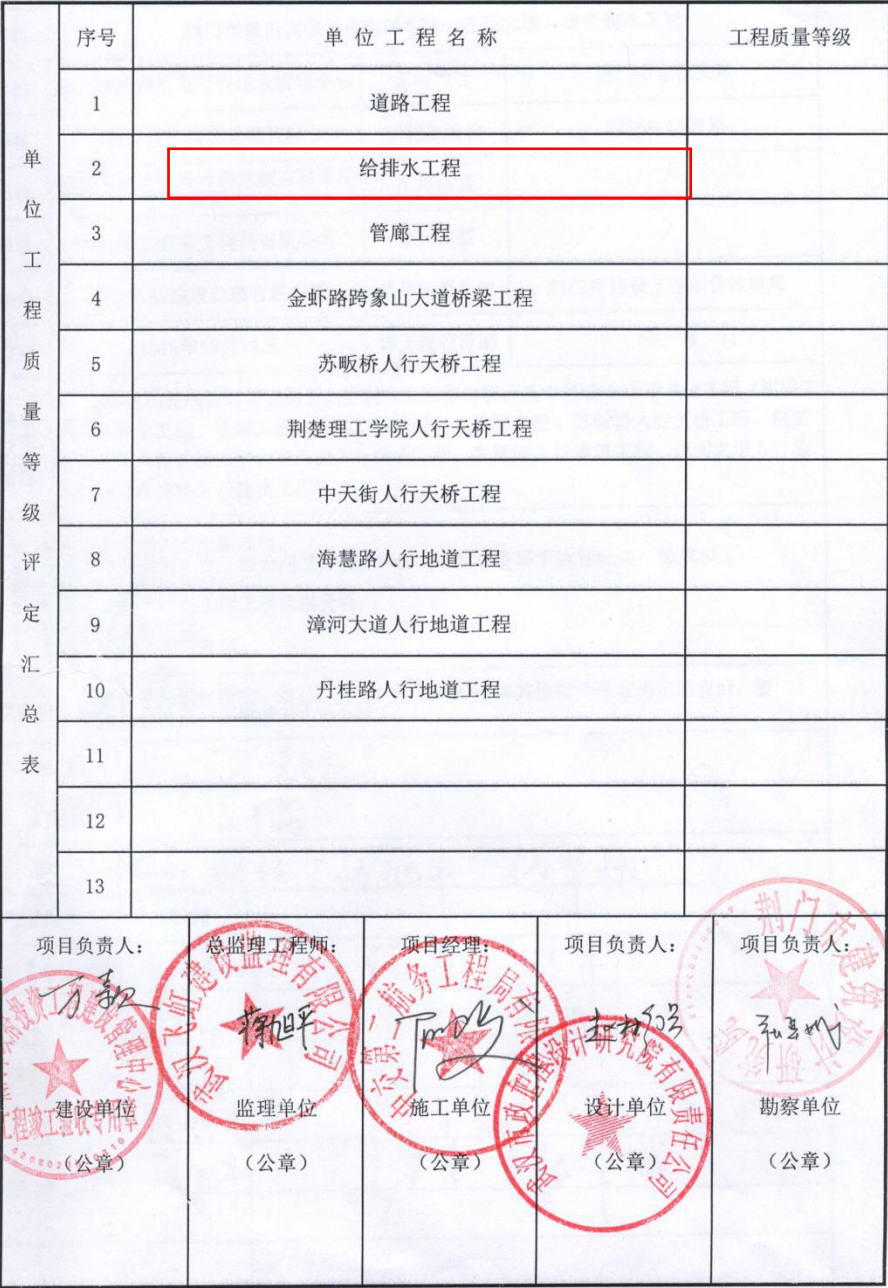 序号 单位工程名称 工程质量等级
单位工程质量等级评定汇总表
1 道路工程
2 给排水工程
3 管廊工程
4 金虾路跨象山大道桥梁工程
5 苏畈桥人行天桥工程
6 荆楚理工学院人行天桥工程
7 中天街人行天桥工程
8 海慧路人行地道工程
9 漳河大道人行地道工程
10 丹桂路人行地道工程
11
12
13
项目负责人： 总监理工程师： 项目经理： 项目负责人： 项目负责人：
建设单位 监理单位 施工单位 设计单位 勘察单位
（公章） （公章） （公章） （公章） （公章）
投资工程建设管理中心
工程竣工验收专用章
武汉飞虹建设监理有限公司
中交第一航务工程局有限
武汉市政工程设计研究院有限责任公司
荆门市建筑设计研究院